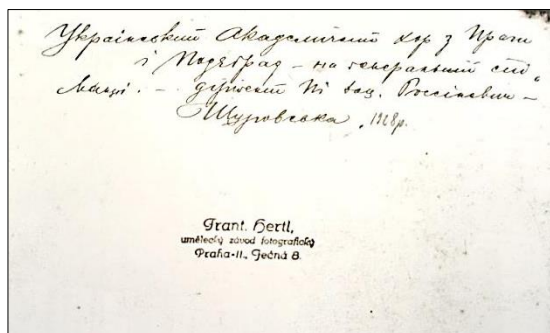 Український Академичний хор з Праги
і Подєбрад – на генеральній
– Россіневич –
Щуровська, 1928 р.
Frant. Hertl,
umělecký závod fotografický
Praha-II., Ječná 8.